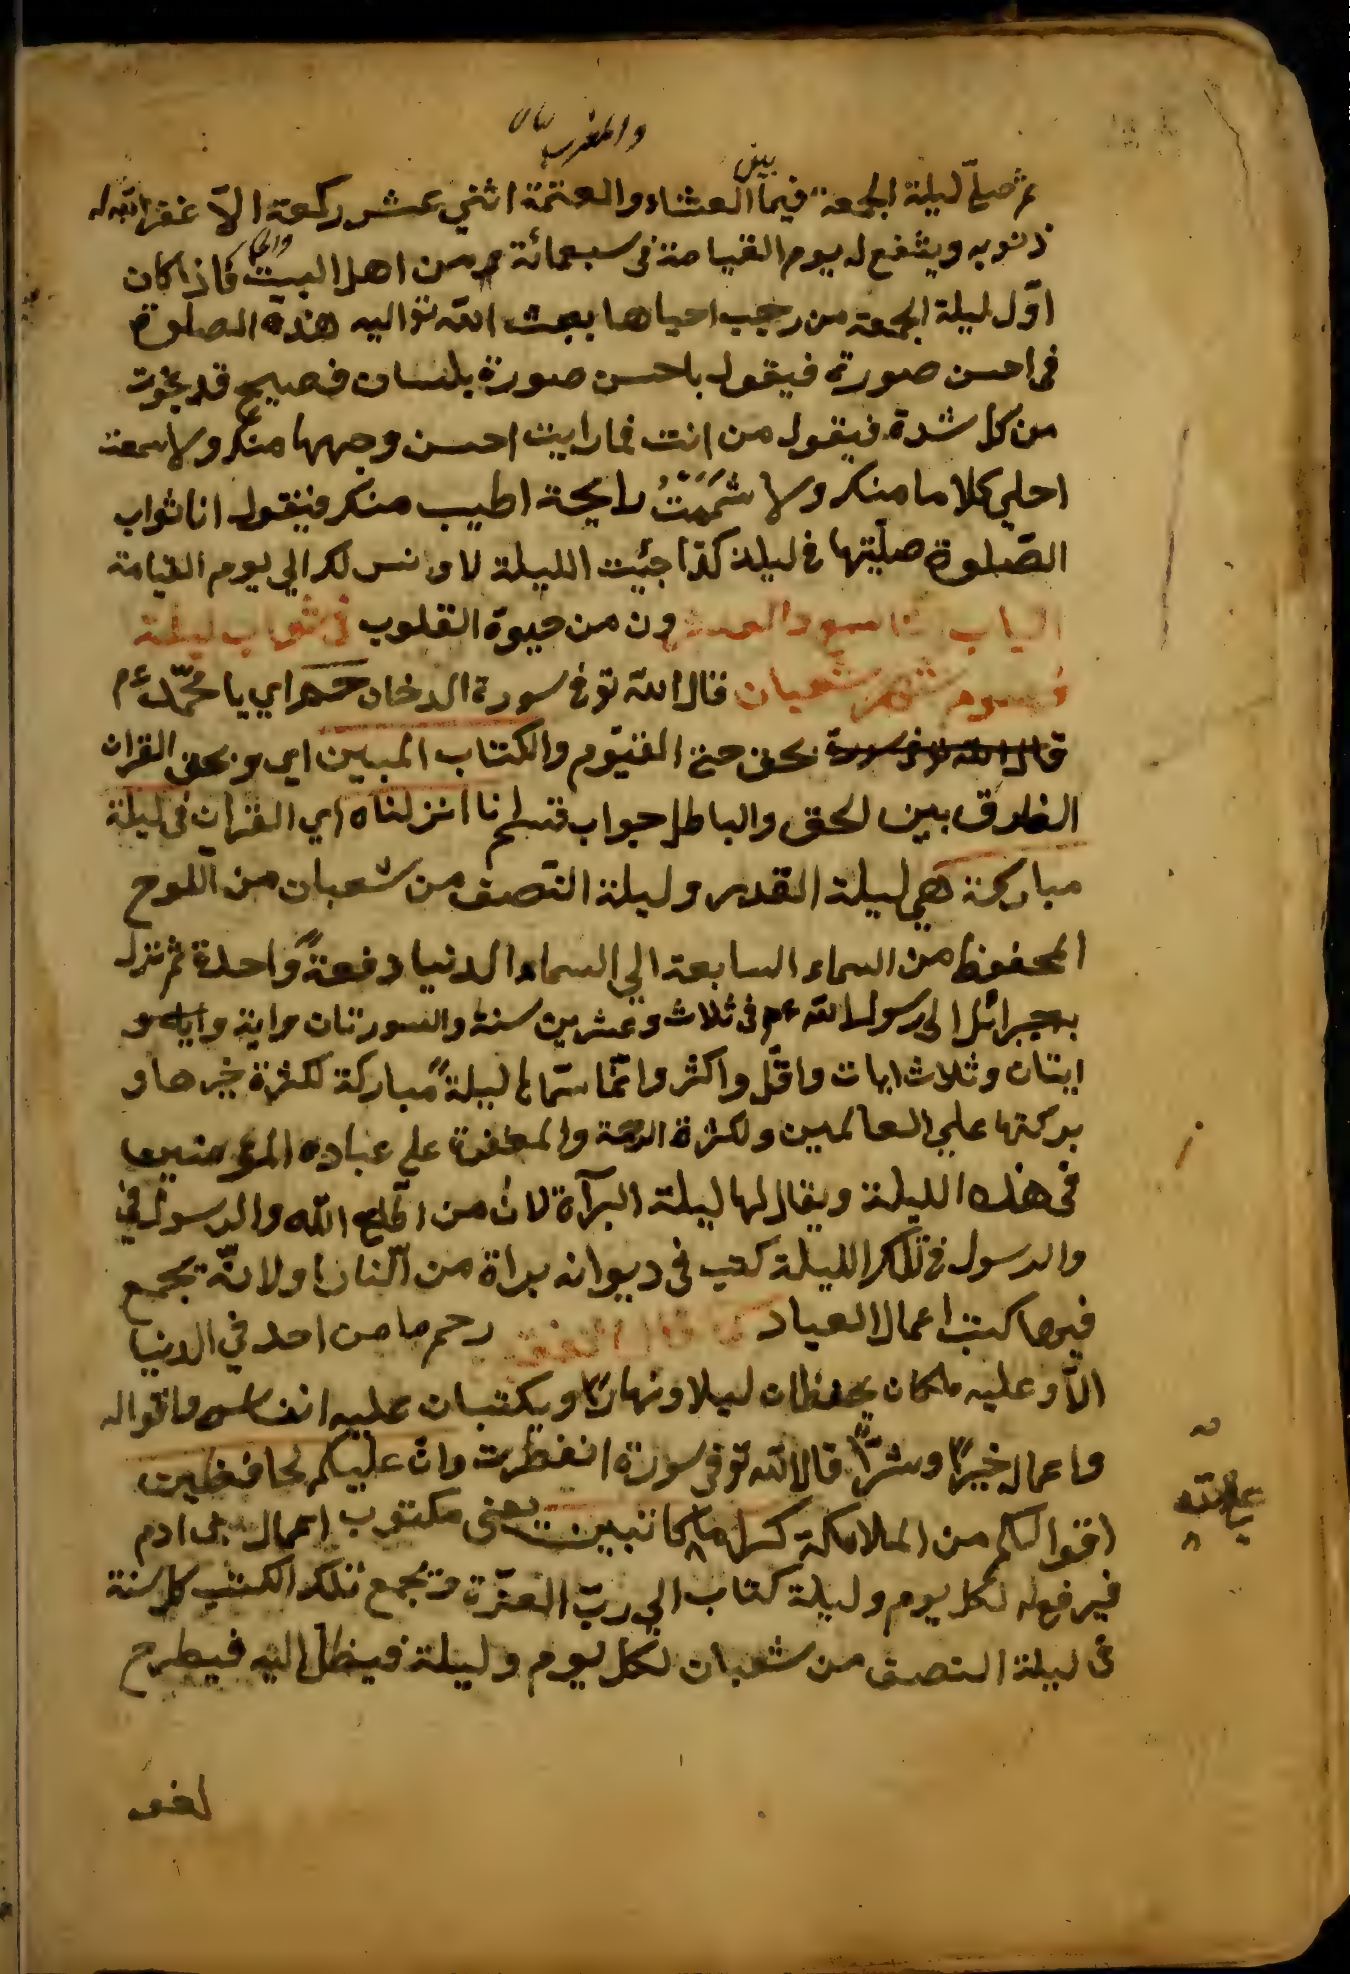 والمغرب
بين
ثم صلي ليلة الجمعة فيما العشاء والعتمة اثني عشر ركعة الا غفر الله له
ذنوبه ويشفع له يوم القيامة في سبعمائة من اهل البيت فاذا كان
اوّل ليلة الجمعة من رجب احياها بعث الله تو اليه هذه الصلوة
في احسن صورة فيقول باحسن صورة بلسان فصيح قد نجوت
من كل شدة فيقول من انت فما رايت احسن وجهها منك ولا سمعت
احلي كلاما منك ولا شَمَمْتُ رايحة اطيب منك فيقول انا ثواب
الصّلوة صليتها في ليلة كذا جئت الليلة لاونس لك الي يوم القيامة
الباب التاسع والعشرون من حيوة القلوب في ثواب ليلة
وصوم شهر شعبان قال الله تو في سورة الدخان حم اي يا محمّد ءم
قال الله تو في سورة بحق حي القيّوم والكتاب المبين اي وبحق القران
الفارق بين الحق والباطل جواب قسم انا انزلناه اي القران في ليلة
مباركة هي ليلة القدر وليلة النّصف من شعبان من اللوح
المحفوظ من السماء السابعة الي السماء الدنيا دفعةً واحدة ثم نزل
بجبرائل الى رسول الله ءم في ثلاث وعشرين سنة والسورتان واية و
ايتان وثلاث ايات واقلّ واكثر وانّما سمّاها ليلةً مباركة لكثرة خيرها و
بركتها علي العالمين ولكثرة الرحمة والمغفرة علي عباده المؤمنين
في هذه الليلة ويقال لها ليلة البرآة لان من اطاع الله والرسول في
والرسول في تلك الليلة كتب في ديوانه براة من النار ولانّه تجمع
فيها كتب اعمال العباد كما قال رحم ما من احد في الدنيا
الاّ وعليه ملكان يحفظان ليلا ونهارًا ويكتبان عليه انفاس واقواله
واعمال خيرًا وشرًّا قال الله تو في سورة انفطرت وانّ عليكم لحافظين
اقوالكم من الملائكة كراما كاتبين يعني مكتوب اعمال بني ادم
فيرفع له لكل يوم وليلة كتاب الي ربّ العزّة وتجمع تلك الكتب كل سنة
في ليلة النصف من شعبان لكل يوم وليلة فينظر اليه فيطرح